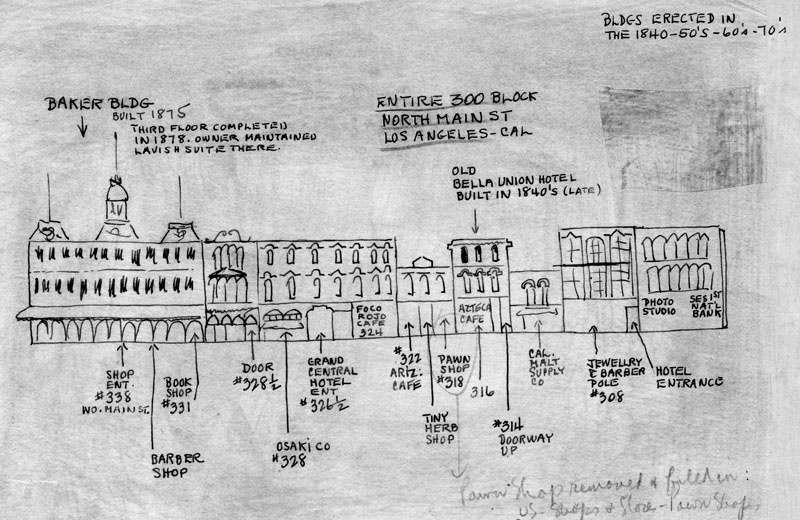 BLDGS ERECTED IN
THE 1840-50'S-60'S-70'S
BAKER BLDG
BUILT 1875
THIRD FLOOR COMPLETED
IN 1878. OWNER MAINTAINED
LAVISH SUITE THERE.
ENTIRE 300 BLOCK
NORTH MAIN ST
LOS ANGELES-CAL
OLD
BELLA UNION HOTEL
BUILT IN 1840'S (LATE)
FOCO
ROJO
CAFE
324
AZTECA
CAFE
PHOTO
STUDIO
SES 1ST
NAT'L
BANK
SHOP
ENT.
#338
NO. MAIN ST.
BARBER
SHOP
BOOK
SHOP
#331
DOOR
#328½
OSAKI CO
#328
GRAND
CENTRAL
HOTEL
ENT
#326½
#322
ARIZ.
CAFE
TINY
HERB
SHOP
PAWN
SHOP
#318
316
#314
DOORWAY
UP
CAL.
MALT
SUPPLY
CO
JEWELLRY
& BARBER
POLE
#308
HOTEL
ENTRANCE
Pawn Shop removed &
Shops & Store - Pawn Shops